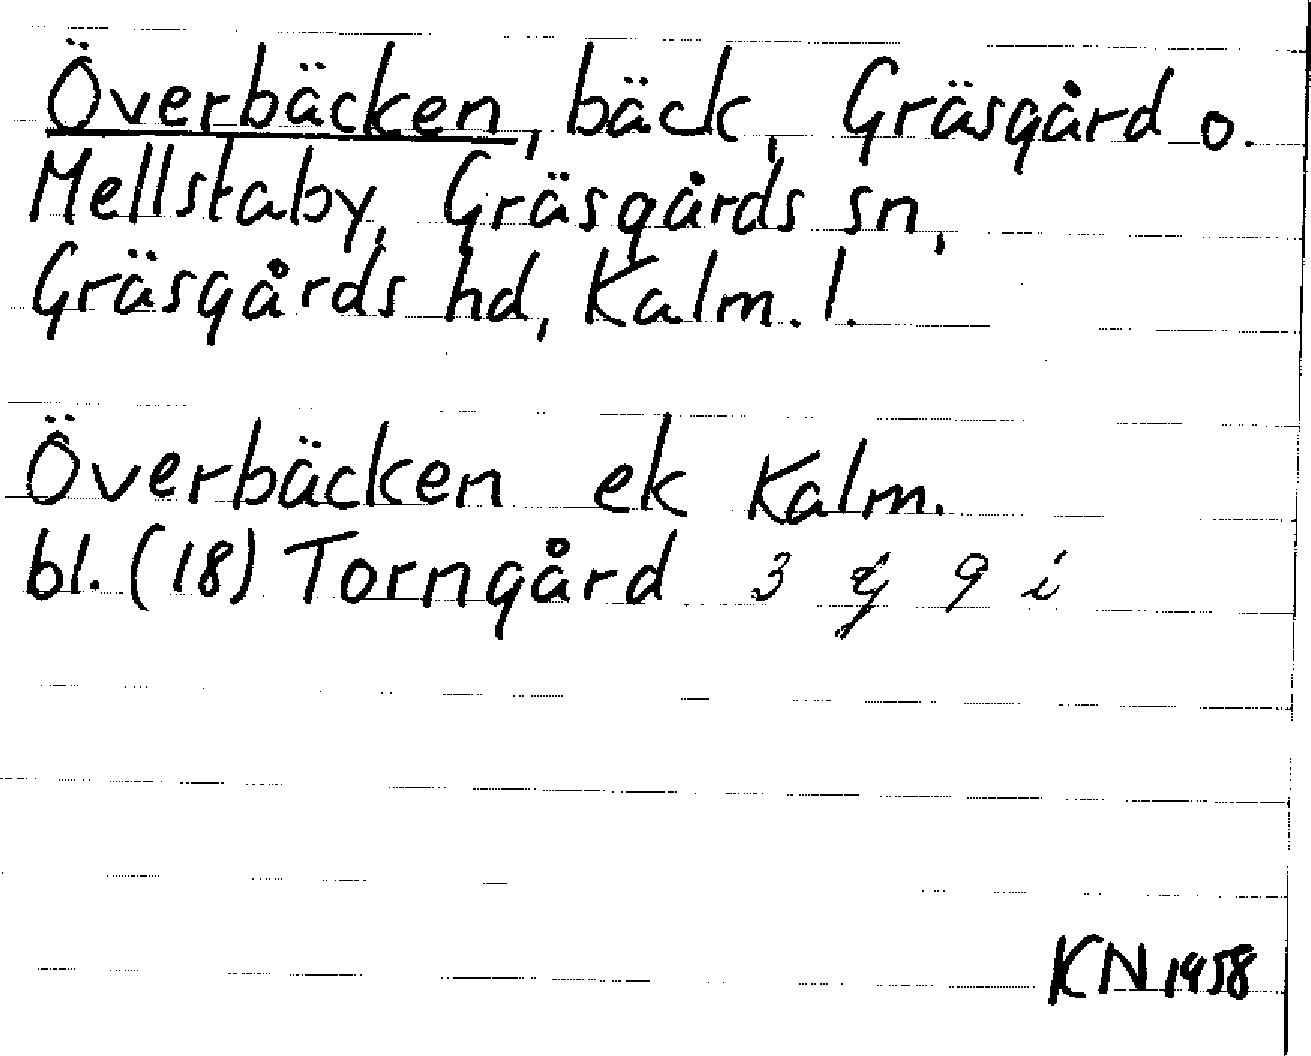 Överbäcken, bäck, Gräsgård o.
Mellstaby, Gräsgårds sn,
Gräsgårds hd, Kalm. l.
Överbäcken ek Kalm.
bl. (18) Torngård 3 g 9 i
KN 1958